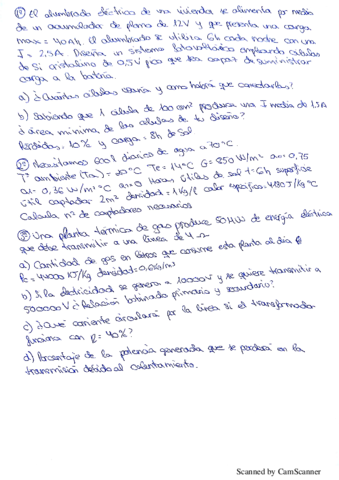 1º) El alumbrado eléctrico de una vivienda se alimenta por medio
de un acumulador de plomo de 12V y que presenta una carga
max = 40Ah. El alumbrado se utiliza 6h cada noche con una
I = 2.5A. Diseña un sistema fotovoltaico empleando células
de Si cristalino de 0,5V para que sea capaz de suministrar
carga a la batería.
a) ¿Cuántas células serían y como habría que conectarlas?
b) Sabiendo que 1 célula de 100 cm² produce una I media de 1.5A
¿área mínima de las células de tu diseño?
Pérdidas: 10% y carga = 8h de Sol
2º) Necesitamos 600 l diarios de agua a 70ºC.
Tª ambiente (Ta) = 20ºC Te = 14ºC G = 850 W/m² α0 = 0,75
α1 = 0,36 W/m² ºC α2 = 0 Horas útiles de sol = 6h superficie
útil captador 2m² densidad = 1 Kg/l calor específico 4180 J/Kg ºC
Calcula nº de captadores necesarios
3º) Una planta térmica de gas produce 50 MW de energía eléctrica
que debe transmitir a una línea de 4 Ω
a) Cantidad de gas en litros que consume esta planta al día
Pc = 44000 KJ/Kg densidad = kg/m³
b) Si la electricidad se genera a 10000V y se quiere transmitir a
500000V ¿Relación bobinado primario y secundario?
c) ¿Qué corriente circulará por la línea si el transformador
funciona con η = 40%?
d) Porcentaje de la potencia generada que se perderá en la
transmisión debido al calentamiento.
Scanned by CamScanner